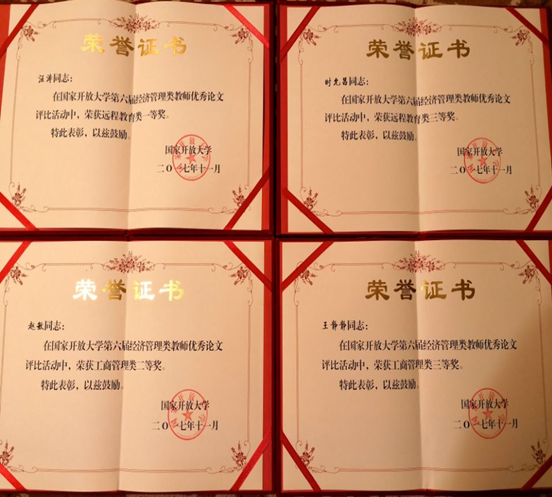 荣誉证书
汪涛同志：
在国家开放大学第六届经济管理类教师优秀论文
评比活动中，荣获远程教育类一等奖。
特此表彰，以兹鼓励。
国家开放大学
二〇一七年十一月
荣誉证书
时光昌同志：
在国家开放大学第六届经济管理类教师优秀论文
评比活动中，荣获远程教育类三等奖。
特此表彰，以兹鼓励。
国家开放大学
二〇一七年十一月
荣誉证书
赵敏同志：
在国家开放大学第六届经济管理类教师优秀论文
评比活动中，荣获工商管理类二等奖。
特此表彰，以兹鼓励。
国家开放大学
二〇一七年十一月
荣誉证书
王静静同志：
在国家开放大学第六届经济管理类教师优秀论文
评比活动中，荣获工商管理类三等奖。
特此表彰，以兹鼓励。
国家开放大学
二〇一七年十一月